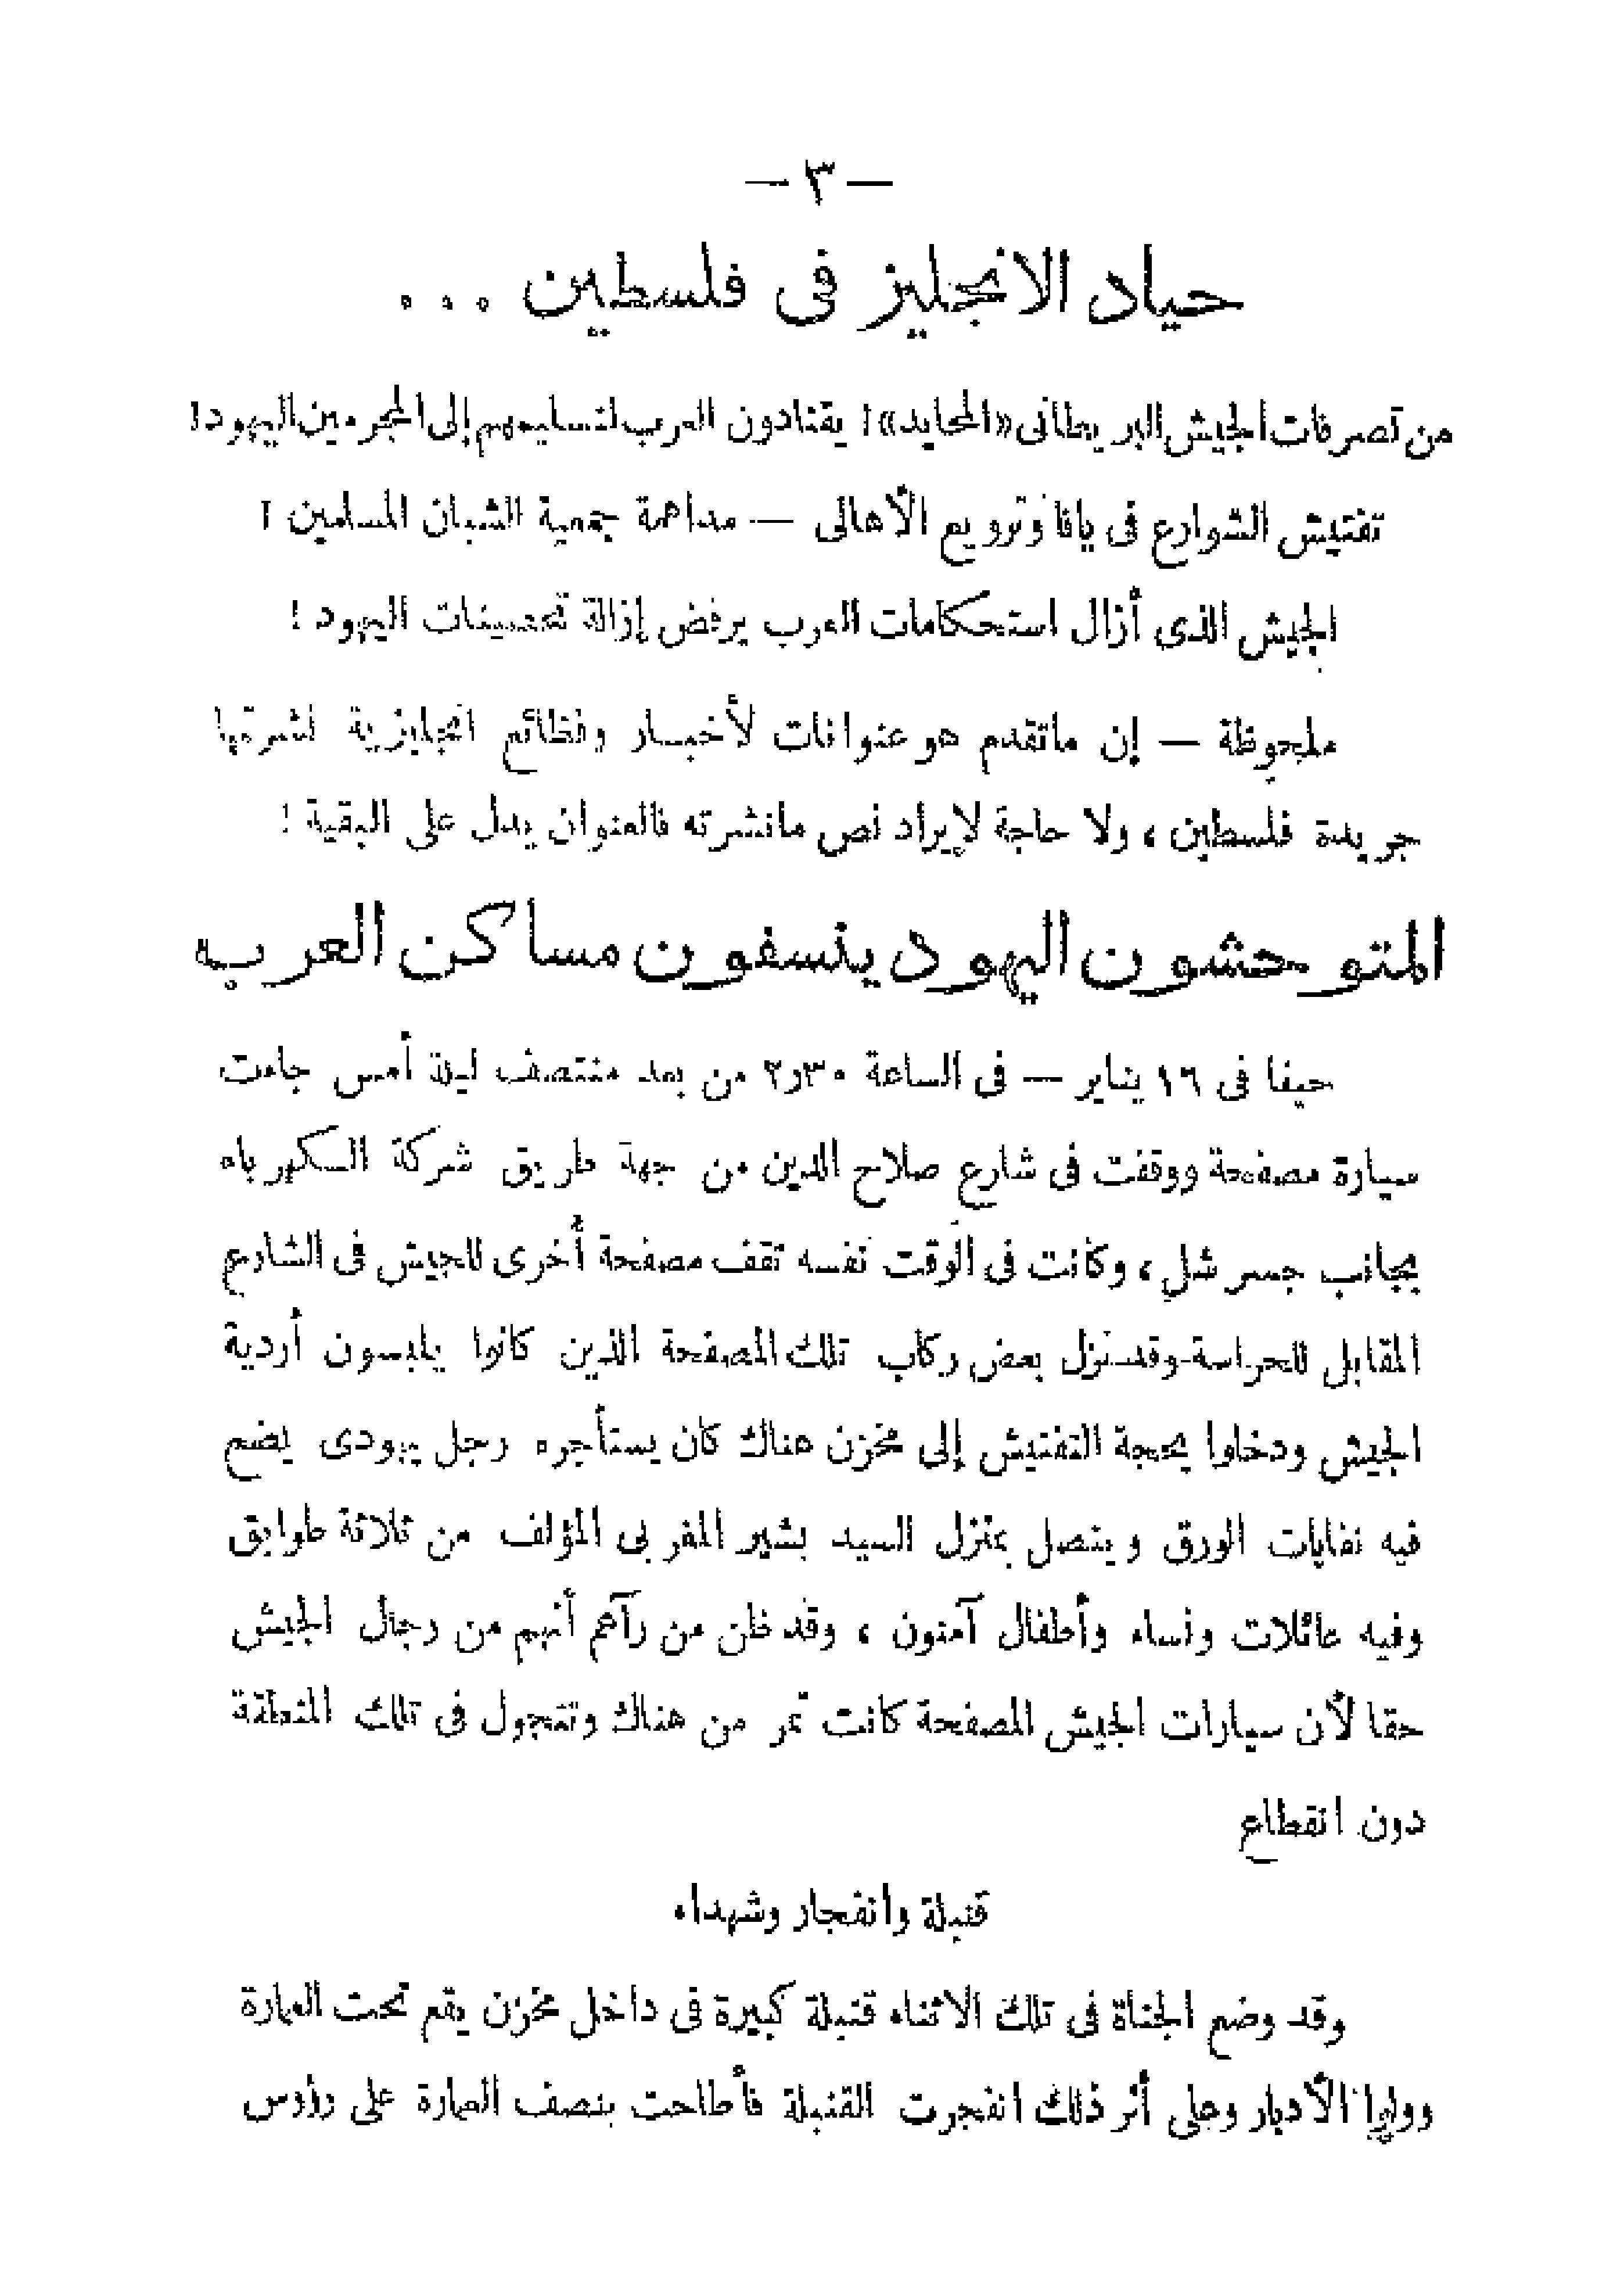 — ٣ —
حياد الانجليز فى فلسطين ...
من تصرفات الجيش البريطانى «المحايد»! يقتادون العرب لتسليمهم إلى المجرمين اليهود!
تفتيش الشوارع فى يافا وترويع الأهالى — مداهمة جمعية الشبان المسلمين !
الجيش الذى أزال استحكامات العرب يرفض إزالة تحصينات اليهود !
ملحوظة — إن ماتقدم هو عنوانات لأخبار وفظائع انجليزية نشرتها
جريدة فلسطين ، ولا حاجة لإيراد نص مانشرته فالعنوان يدل على البقية !
المتوحشون اليهود ينسفون مساكن العرب
حيفا فى ١٦ يناير — فى الساعة ٢٫٣٠ من بعد منتصف ليلة أمس جاءت
سيارة مصفحة ووقفت فى شارع صلاح الدين من جهة طريق شركة الكهرباء
بجانب جسر شل ، وكانت فى الوقت نفسه تقف مصفحة أخرى للجيش فى الشارع
المقابل للحراسة وقد نزل بعض ركاب تلك المصفحة الذين كانوا يلبسون أردية
الجيش ودخلوا بحجة التفتيش إلى مخزن هناك كان يستأجره رجل يهودى يضع
فيه نفايات الورق ويتصل بمنزل السيد بشير المغربى المؤلف من ثلاثة طوابق
وفيه عائلات ونساء وأطفال آمنون ، وقد ظن من رآهم أنهم من رجال الجيش
حقا لأن سيارات الجيش المصفحة كانت تمر من هناك وتتجول فى تلك المنطقة
دون انقطاع
قنبلة وانفجار وشهداء
وقد وضع الجناة فى تلك الاثناء قنبلة كبيرة فى داخل مخزن يقع تحت العمارة
وولوا الأدبار وعلى أثر ذلك انفجرت القنبلة فأطاحت بنصف العمارة على رؤوس